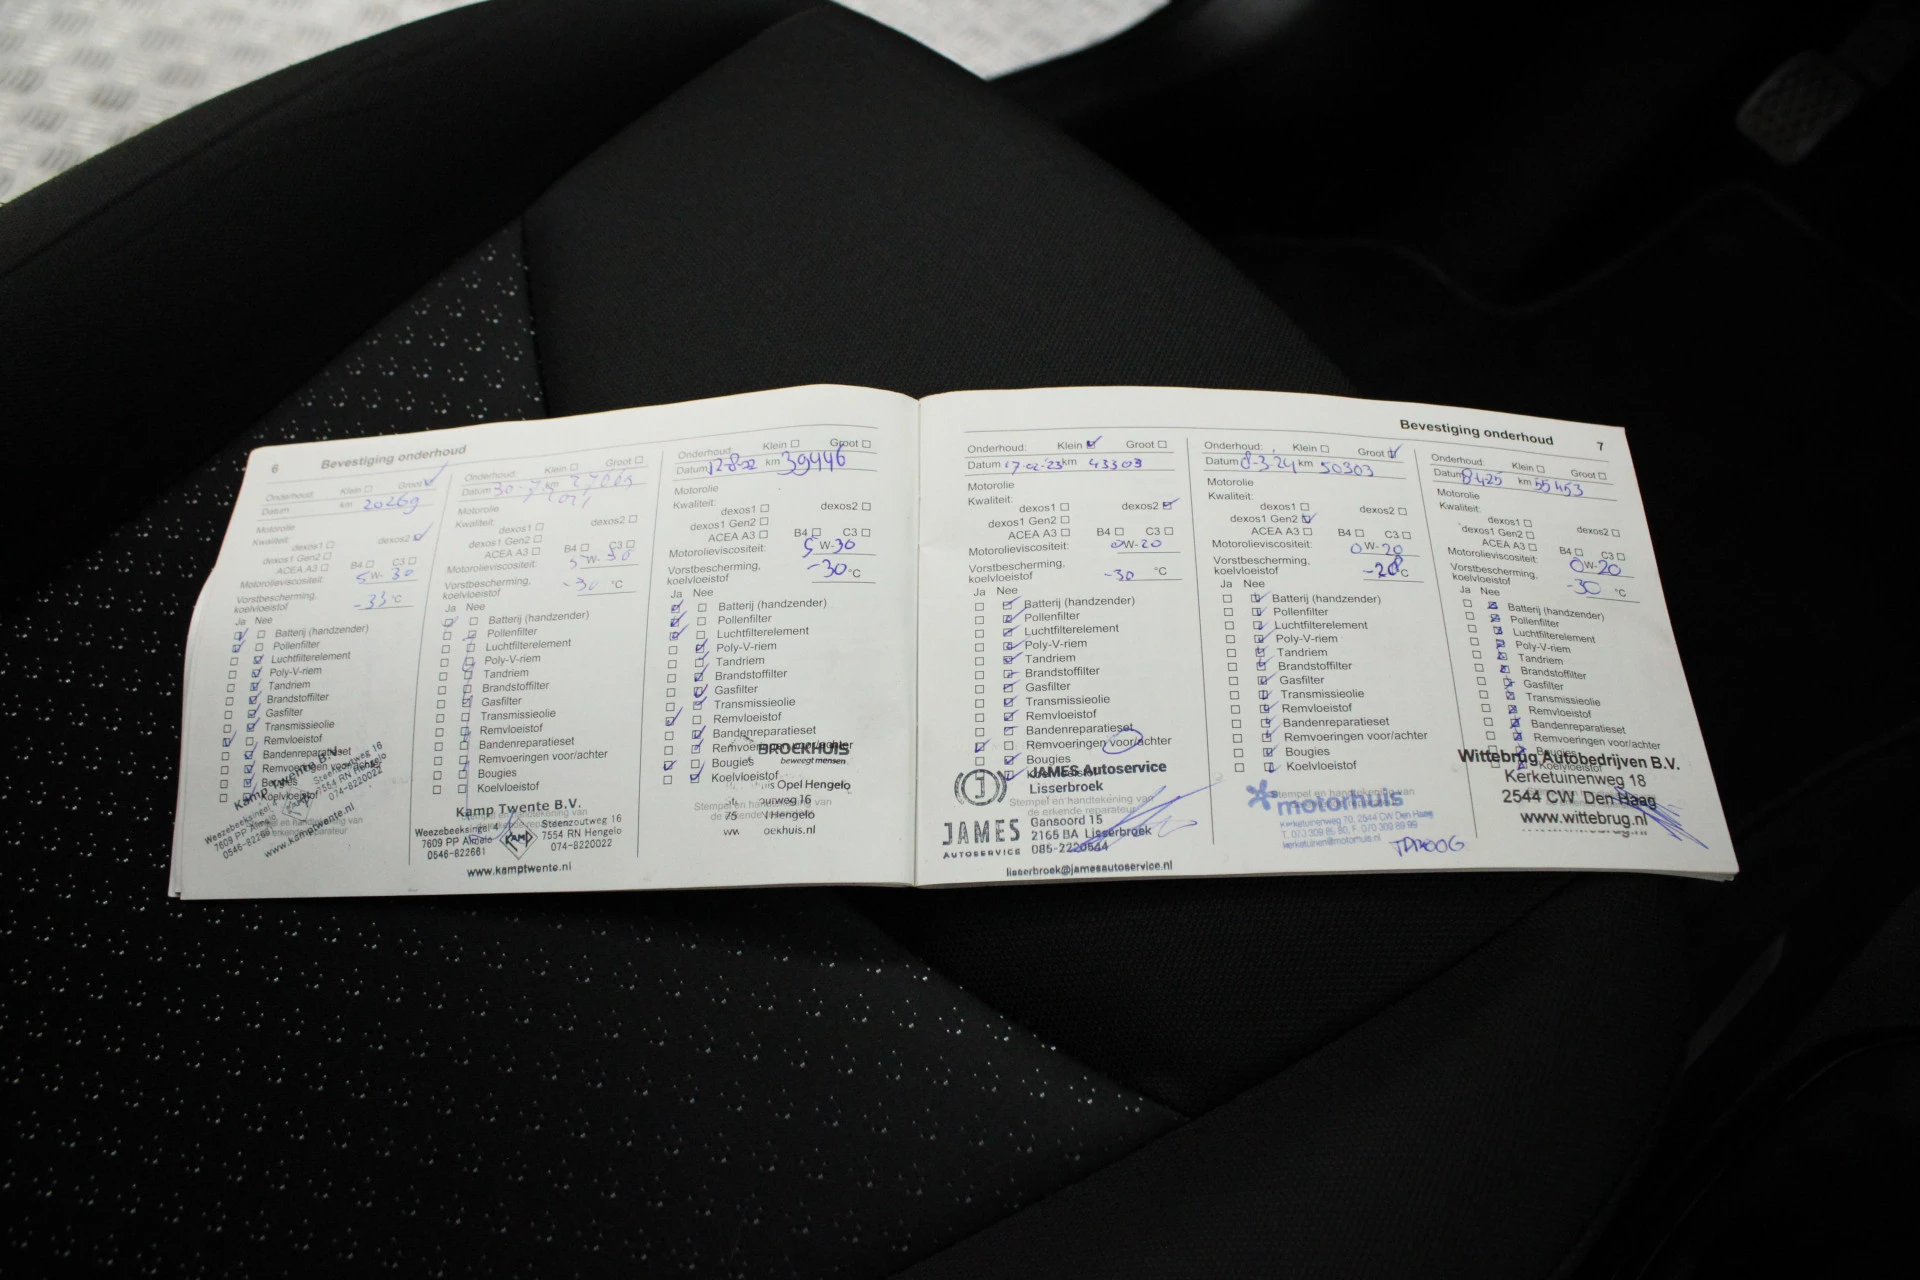 6 Bevestiging onderhoud
Onderhoud: Klein Groot
Datum km 20269
Motorolie
Kwaliteit:
dexos1 dexos2
dexos1 Gen2
ACEA A3 B4 C3
Motorolieviscositeit: 5 W- 30
Vorstbescherming,
koelvloeistof -33 °C
Ja Nee
Batterij (handzender)
Pollenfilter
Luchtfilterelement
Poly-V-riem
Tandriem
Brandstoffilter
Gasfilter
Transmissieolie
Remvloeistof
Bandenreparatieset
Remvoeringen voor/achter
Bougies
Koelvloeistof
Kamp Twente B.V.
Weezebeeksingel 4
7609 PP Almelo
0546-822661
Steenzoutweg 16
7554 RN Hengelo
074-8220022
www.kamptwente.nl
Onderhoud: Klein Groot
Datum 30-7 km
Motorolie
Kwaliteit:
dexos1 dexos2
dexos1 Gen2
ACEA A3 B4 C3
Motorolieviscositeit: 5 W- 30
Vorstbescherming,
koelvloeistof -30 °C
Ja Nee
Batterij (handzender)
Pollenfilter
Luchtfilterelement
Poly-V-riem
Tandriem
Brandstoffilter
Gasfilter
Transmissieolie
Remvloeistof
Bandenreparatieset
Remvoeringen voor/achter
Bougies
Koelvloeistof
Kamp Twente B.V.
Weezebeeksingel 4
7609 PP Almelo
0546-822661
KAMP
Steenzoutweg 16
7554 RN Hengelo
074-8220022
www.kamptwente.nl
Onderhoud: Klein Groot
Datum 12-8-22 km 39446
Motorolie
Kwaliteit:
dexos1 dexos2
dexos1 Gen2
ACEA A3 B4 C3
Motorolieviscositeit: 5 W-30
Vorstbescherming,
koelvloeistof -30 °C
Ja Nee
Batterij (handzender)
Pollenfilter
Luchtfilterelement
Poly-V-riem
Tandriem
Brandstoffilter
Gasfilter
Transmissieolie
Remvloeistof
Bandenreparatieset
Remvoeringen voor/achter
Bougies
Koelvloeistof
BROEKHUIS
beweegt mensen
Opel Hengelo
Stempel en handtekening van
de erkende reparateur
Hengelo
Bevestiging onderhoud 7
Onderhoud: Klein Groot
Datum 17-02-'23 km 43303
Motorolie
Kwaliteit:
dexos1 dexos2
dexos1 Gen2
ACEA A3 B4 C3
Motorolieviscositeit: 0W-20
Vorstbescherming,
koelvloeistof -30 °C
Ja Nee
Batterij (handzender)
Pollenfilter
Luchtfilterelement
Poly-V-riem
Tandriem
Brandstoffilter
Gasfilter
Transmissieolie
Remvloeistof
Bandenreparatieset
Remvoeringen voor/achter
Bougies
Koelvloeistof
JAMES Autoservice
Lisserbroek
Stempel en handtekening van
de erkende reparateur
Gansoord 15
2165 BA Lisserbroek
085-2220544
JAMES
AUTOSERVICE
lisserbroek@jamesautoservice.nl
Onderhoud: Klein Groot
Datum 8-3-24 km 50303
Motorolie
Kwaliteit:
dexos1 dexos2
dexos1 Gen2
ACEA A3 B4 C3
Motorolieviscositeit: 0 W-20
Vorstbescherming,
koelvloeistof -28 °C
Ja Nee
Batterij (handzender)
Pollenfilter
Luchtfilterelement
Poly-V-riem
Tandriem
Brandstoffilter
Gasfilter
Transmissieolie
Remvloeistof
Bandenreparatieset
Remvoeringen voor/achter
Bougies
Koelvloeistof
Stempel en handtekening van
motorhuis
Kerketuinenweg 70, 2544 CW Den Haag
kerketuinen@motorhuis.nl
Onderhoud: Klein Groot
Datum 8-4-25 km 55453
Motorolie
Kwaliteit:
dexos1 dexos2
dexos1 Gen2
ACEA A3 B4 C3
Motorolieviscositeit: 0 W-20
Vorstbescherming,
koelvloeistof -30 °C
Ja Nee
Batterij (handzender)
Pollenfilter
Luchtfilterelement
Poly-V-riem
Tandriem
Brandstoffilter
Gasfilter
Transmissieolie
Remvloeistof
Bandenreparatieset
Remvoeringen voor/achter
Bougies
Koelvloeistof
Wittebrug Autobedrijven B.V.
Kerketuinenweg 18
2544 CW Den Haag
www.wittebrug.nl